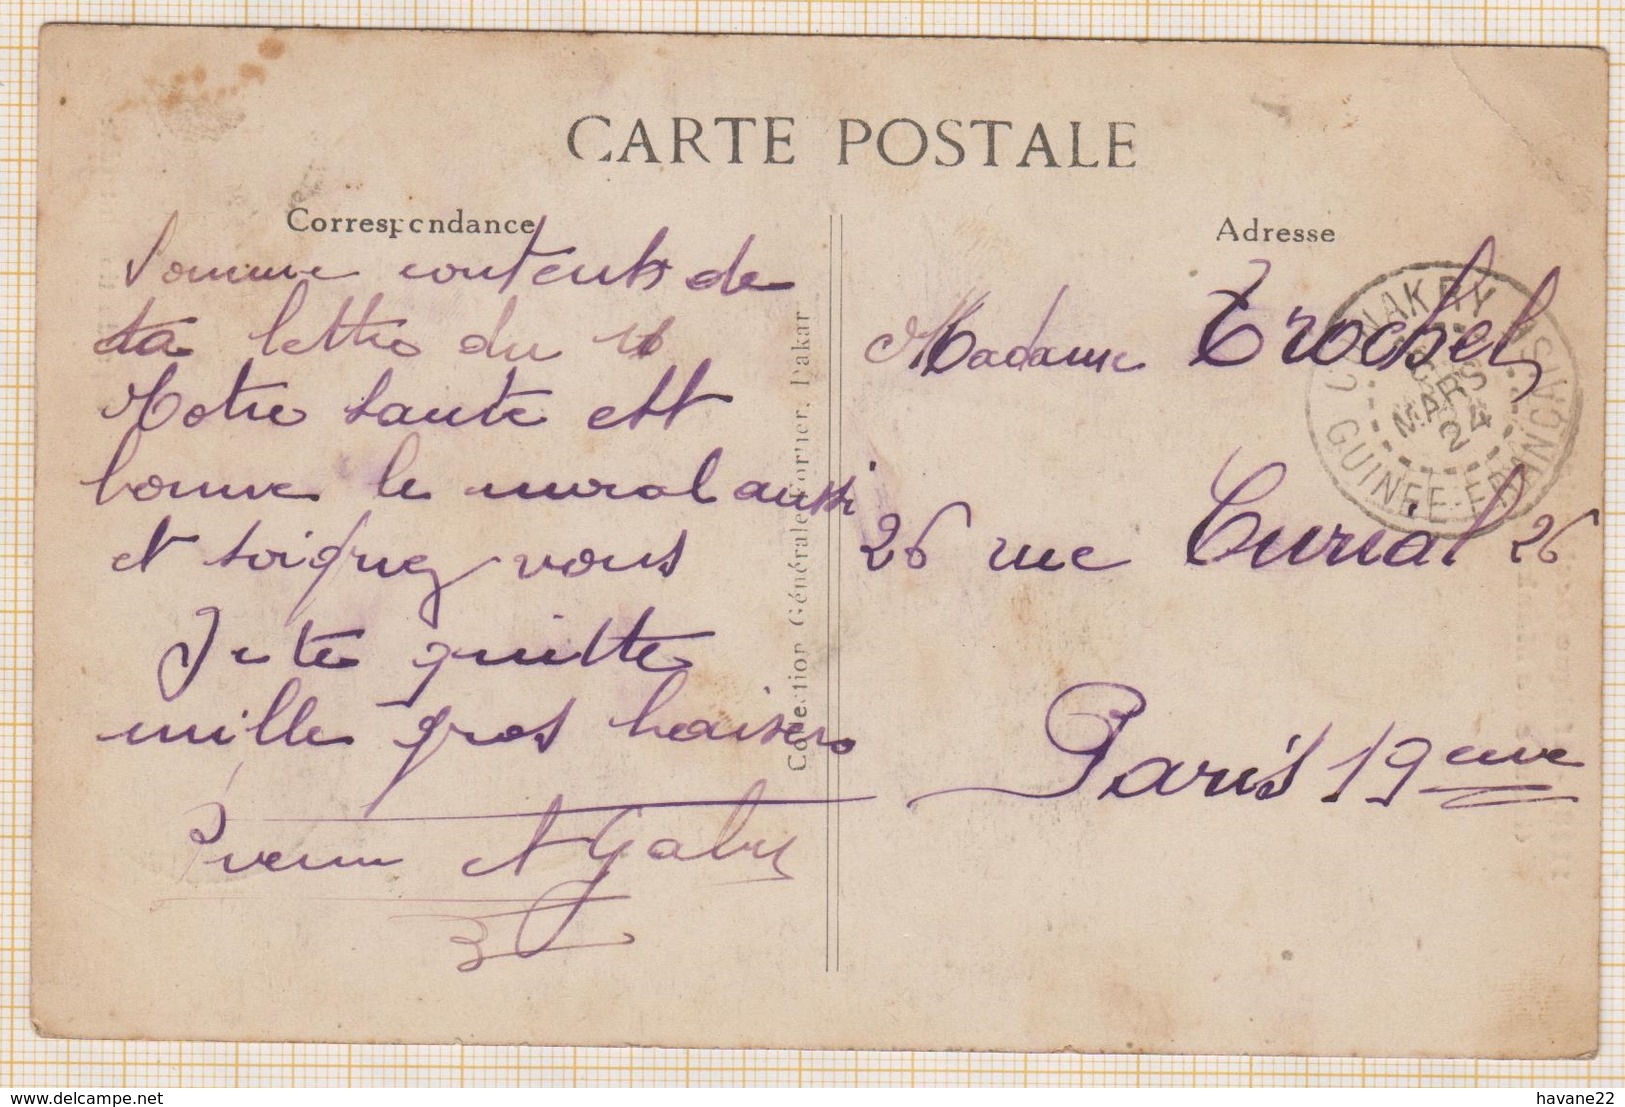 CARTE POSTALE
Correspondance
Adresse
Somme contents de
ta lettre du
Notre santé est
bonne le moral aussi
et soignez vous
Je te quitte
mille gros baisers
et Gaby
Collection Générale Fortier, Dakar
Madame Trochel
26 rue Curial 26
Paris 19eme
CONAKRY
MARS
24
GUINÉE FRANÇAISE
www.delcampe.net
havane22